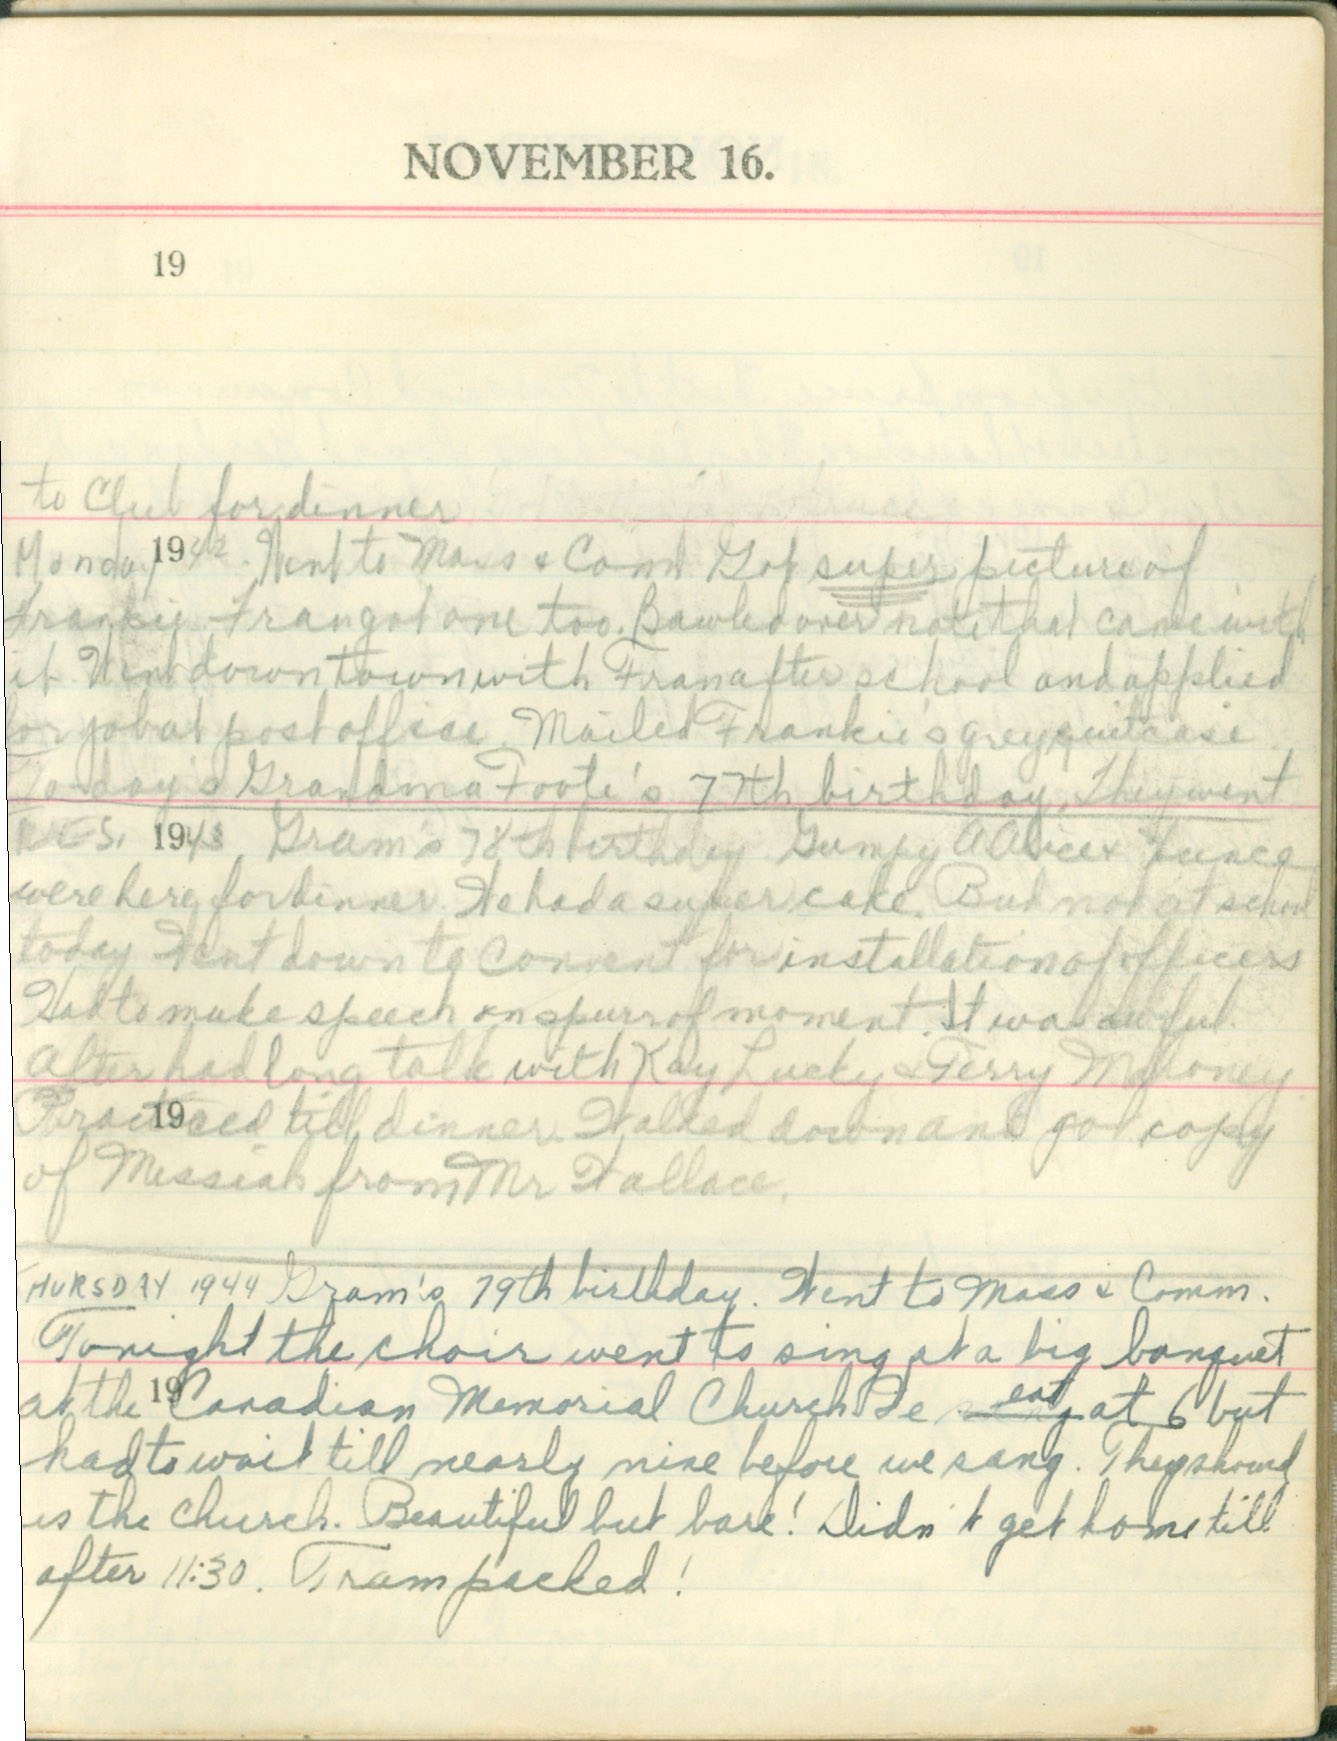 NOVEMBER 16.
19
to Club for dinner
Monday 1942. Went to Mass & Comm. Got super picture of
Frankie. Fran got one too. Bawled over note that came with
it. Went downtown with Fran after school and applied
for job at post office. Mailed Frankie's grey suitcase.
Today's Grandma Foote's 77th birthday. They went
UES. 1943 Gram's 78th birthday. Gumpy A Alice &
were here for dinner. We had a super cake. Bud not at school
today. Went down to Convent for installation of officers
Had to make speech on spurr of moment. It was awful.
After had long talk with Kay Lucky & Terry Mahoney.
19 Practiced till dinner. Walked down and got copy
of Messiah from Mr Wallace.
HURSDAY 1944 Gram's 79th birthday. Went to Mass & Comm.
Tonight the choir went to sing at a big banquet
19 at the Canadian Memorial Church. We eat at 6 but
had to wait till nearly nine before we sang. They showed
us the church. Beautiful but bare! Didn't get home till
after 11:30. Tram packed!